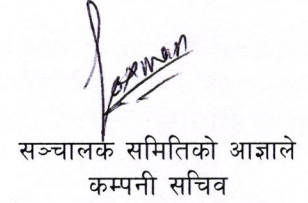 Laxman
सञ्चालक समितिको आज्ञाले
कम्पनी सचिव